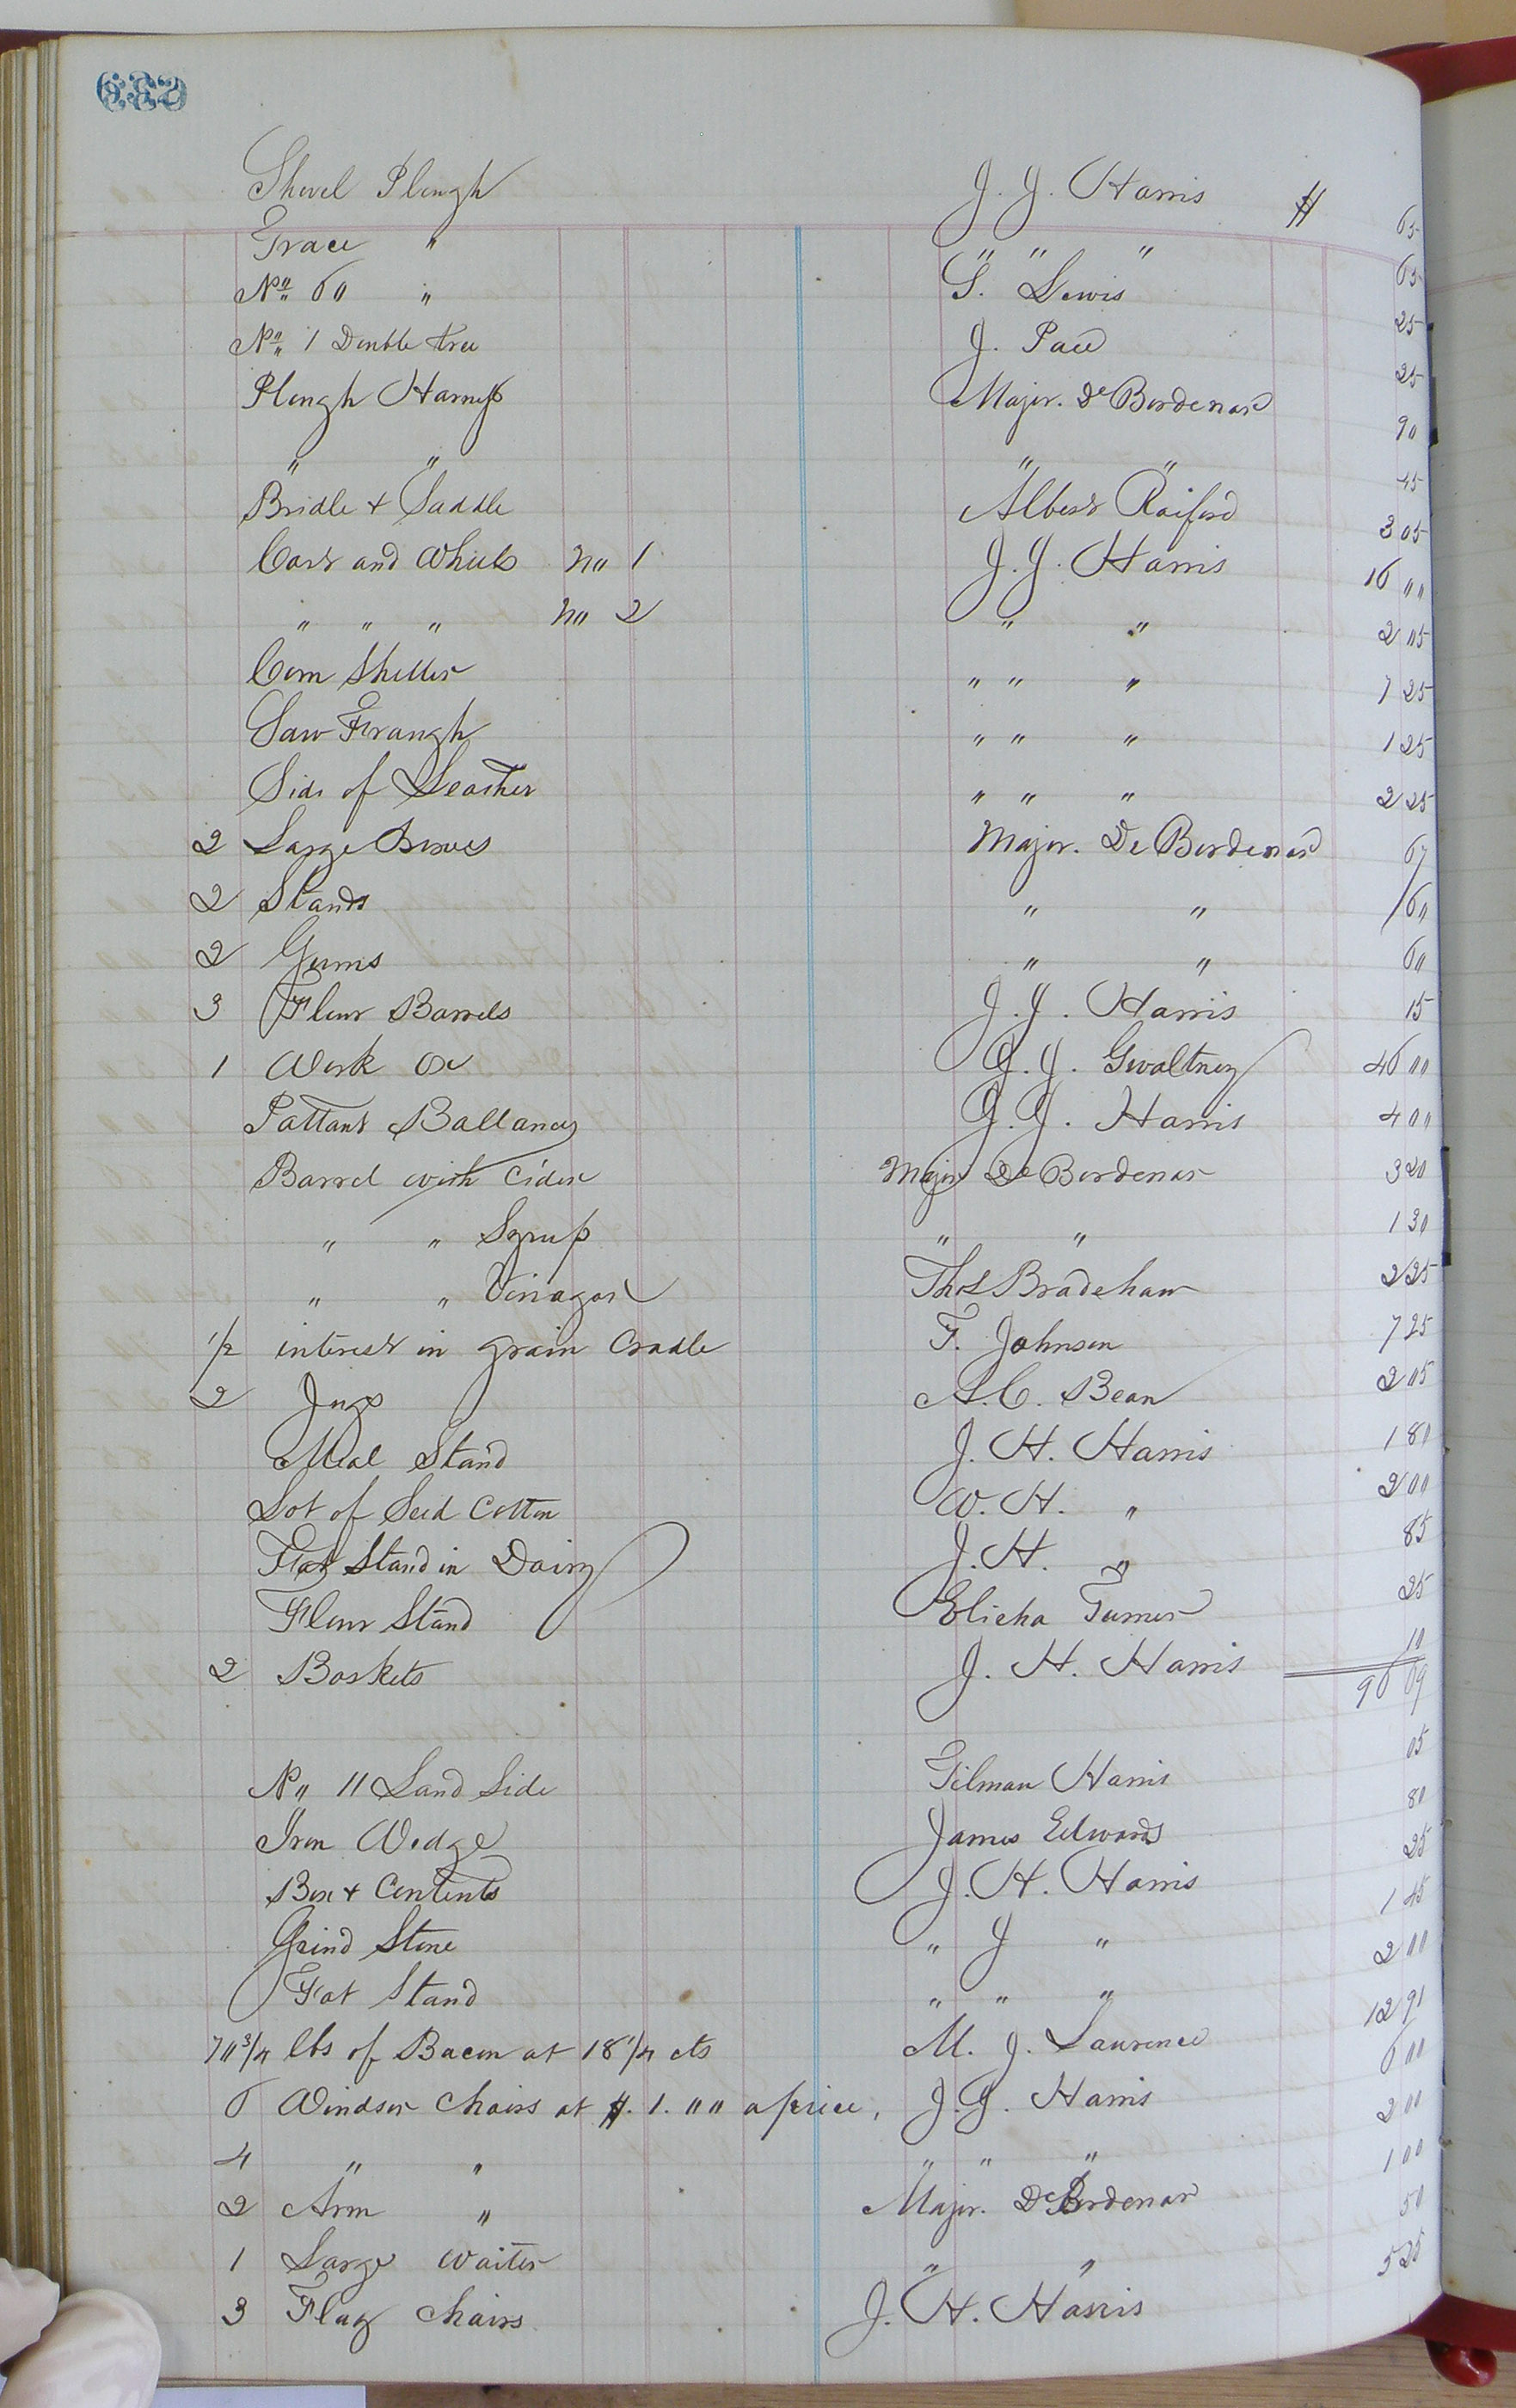 632
Shovel Plough J. J. Harris $ 65
Trace " " " " 65
No 60 " S. Lewis 25
No 1 Double tree J. Pace 25
Plough Harness Major. De Bordenave 90
" " " " 45
Bridle & Saddle Albert Raiford 3 05
Cart and Wheels No 1 J. J. Harris 16 00
" " " No 2 " " 2 05
Corn Sheller " " " 7 25
Saw Trough " " " 1 25
Side of Leather " " " 2 25
2 Large Boxes Major. De Bordenave 67
2 Stands " " 60
2 Gums " " 60
3 Flour Barrels J. J. Harris 15
1 Work Ox J. J. Gwaltney 46 00
Pattant Ballancy J. J. Harris 4 00
Barrel with Cider Major De Bordenav 3 20
" " Syrup " " 1 30
" " Vinagar Thos Bradshaw 2 25
1/2 interest in grain Cradle F. Johnson 7 25
2 Jugs A. C. Bean 2 05
Meal Stand J. H. Harris 1 80
Lot of Seed Cotton W. H. " 2 00
Fat Stand in Dairy J. H. " 85
Flour Stand Elisha Turner 25
2 Baskets J. H. Harris 10
96 69
No 11 Land Side Tilman Harris 05
Iron Wedge James Edwards 80
Box & Contents J. H. Harris 25
Grind Stone " J " 1 45
Fat Stand " " " 2 00
70 3/4 lbs of Bacon at 18 1/4 cts M. J. Laurence 12 91
6 Windsor Chairs at $. 1. 00 apeice, J. J. Harris 6 00
4 " " " " " 2 00
2 Arm " Major. De Bordenav 1 00
1 Large Waiter " " 50
3 Flag Chairs J. H. Harris 5 25